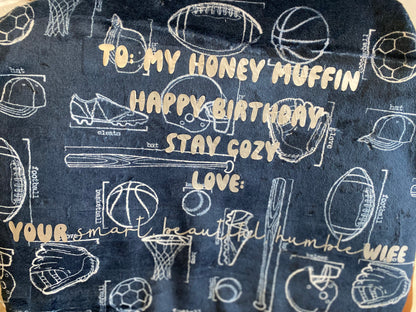 TO: MY HONEY MUFFIN
hat
HAPPY BIRTHDAY
cleats
STAY COZY
bat
football
LOVE:
YOUR smart, beautiful humble WIFE